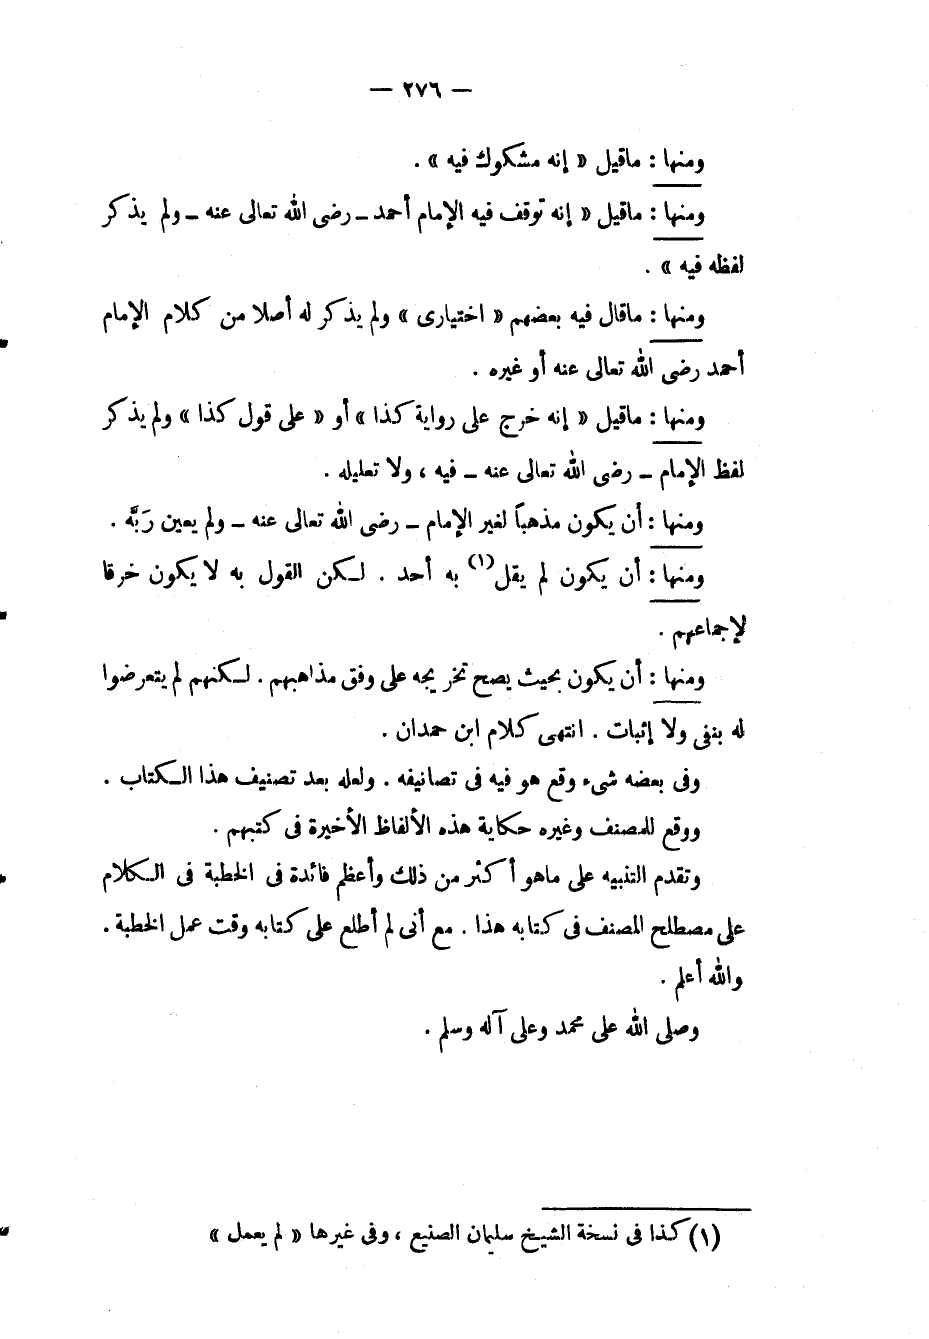 — ٢٧٦ —
ومنها : ماقيل « إنه مشكوك فيه » .
ومنها : ماقيل « إنه توقف فيه الإمام أحمد ــ رضى الله تعالى عنه ــ ولم يذكر
لفظه فيه » .
ومنها : ماقال فيه بعضهم « اختيارى » ولم يذكر له أصلا من كلام الإمام
أحمد رضى الله تعالى عنه أو غيره .
ومنها : ماقيل « إنه خرج على رواية كذا » أو « على قول كذا » ولم يذكر
لفظ الإمام ــ رضى الله تعالى عنه ــ فيه ، ولا تعليله .
ومنها : أن يكون مذهباً لغير الإمام ــ رضى الله تعالى عنه ــ ولم يعين رَبَّه .
ومنها : أن يكون لم يقل(١) به أحد . لـكن القول به لا يكون خرقا
لإجماعهم .
ومنها : أن يكون بحيث يصح تخريجه على وفق مذاهبهم . لـكنهم لم يتعرضوا
له بنفى ولا إثبات . انتهى كلام ابن حمدان .
وفى بعضه شىء وقع هو فيه فى تصانيفه . ولعله بعد تصنيف هذا الـكتاب .
ووقع للمصنف وغيره حكاية هذه الألفاظ الأخيرة فى كتبهم .
وتقدم التنبيه على ماهو أكثر من ذلك وأعظم فائدة فى الخطبة فى الـكلام
على مصطلح المصنف فى كتابه هذا . مع أنى لم أطلع على كتابه وقت عمل الخطبة .
والله أعلم .
وصلى الله على محمد وعلى آله وسلم .
(١) كذا فى نسخة الشيخ سليمان الصنيع ، وفى غيرها « لم يعمل »